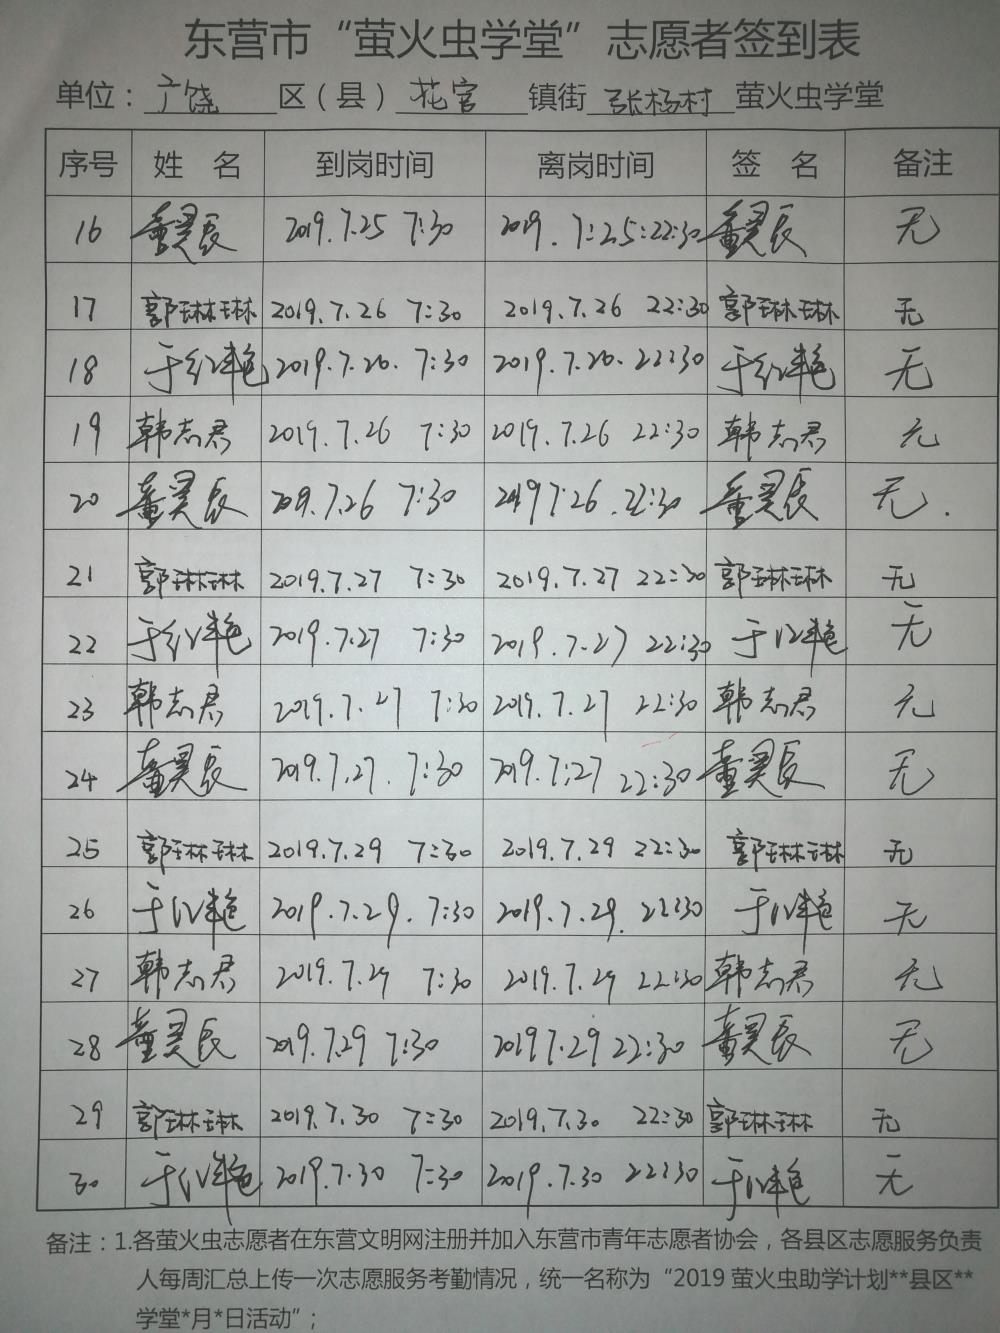 东营市“萤火虫学堂”志愿者签到表
单位：广饶区（县）花官镇街张杨村萤火虫学堂
序号 姓 名 到岗时间 离岗时间 签 名 备注
16 董昊辰 2019.7.25 7:30 2019.7:25:22:30 董昊辰 无
17 郭琳琳 2019.7.26 7:30 2019.7.26 22:30 郭琳琳 无
18 于红艳 2019.7.26. 7:30 2019.7.26. 22:30 于红艳 无
19 韩志君 2019.7.26 7:30 2019.7.26 22:30 韩志君 无
20 董昊辰 2019.7.26 7:30 2019 7.26.22:30 董昊辰 无.
21 郭琳琳 2019.7.27 7:30 2019.7.27 22:30 郭琳琳 无
22 于红艳 2019.7.27 7:30 2019.7.27 22:30 于红艳 无
23 韩志君 2019.7.27 7:30 2019.7.27 22:30 韩志君 无
24 董昊辰 2019.7.27. 7:30 2019.7.27 22:30 董昊辰 无
25 郭琳琳 2019.7.29 7:30 2019.7.29 22:30 郭琳琳 无
26 于红艳 2019.7.29. 7:30 2019.7.29. 22:30 于红艳 无
27 韩志君 2019.7.29 7:30 2019.7.29 22:30 韩志君 无
28 董昊辰 2019.7.29 7:30 2019 7.29 22:30 董昊辰 无
29 郭琳琳 2019.7.30 7:30 2019.7.30 22:30 郭琳琳 无
30 于红艳 2019.7.30 7:30 2019.7.30 22:30 于红艳 无
备注：1.各萤火虫志愿者在东营文明网注册并加入东营市青年志愿者协会，各县区志愿服务负责
人每周汇总上传一次志愿服务考勤情况，统一名称为“2019 萤火虫助学计划**县区**
学堂*月*日活动”；